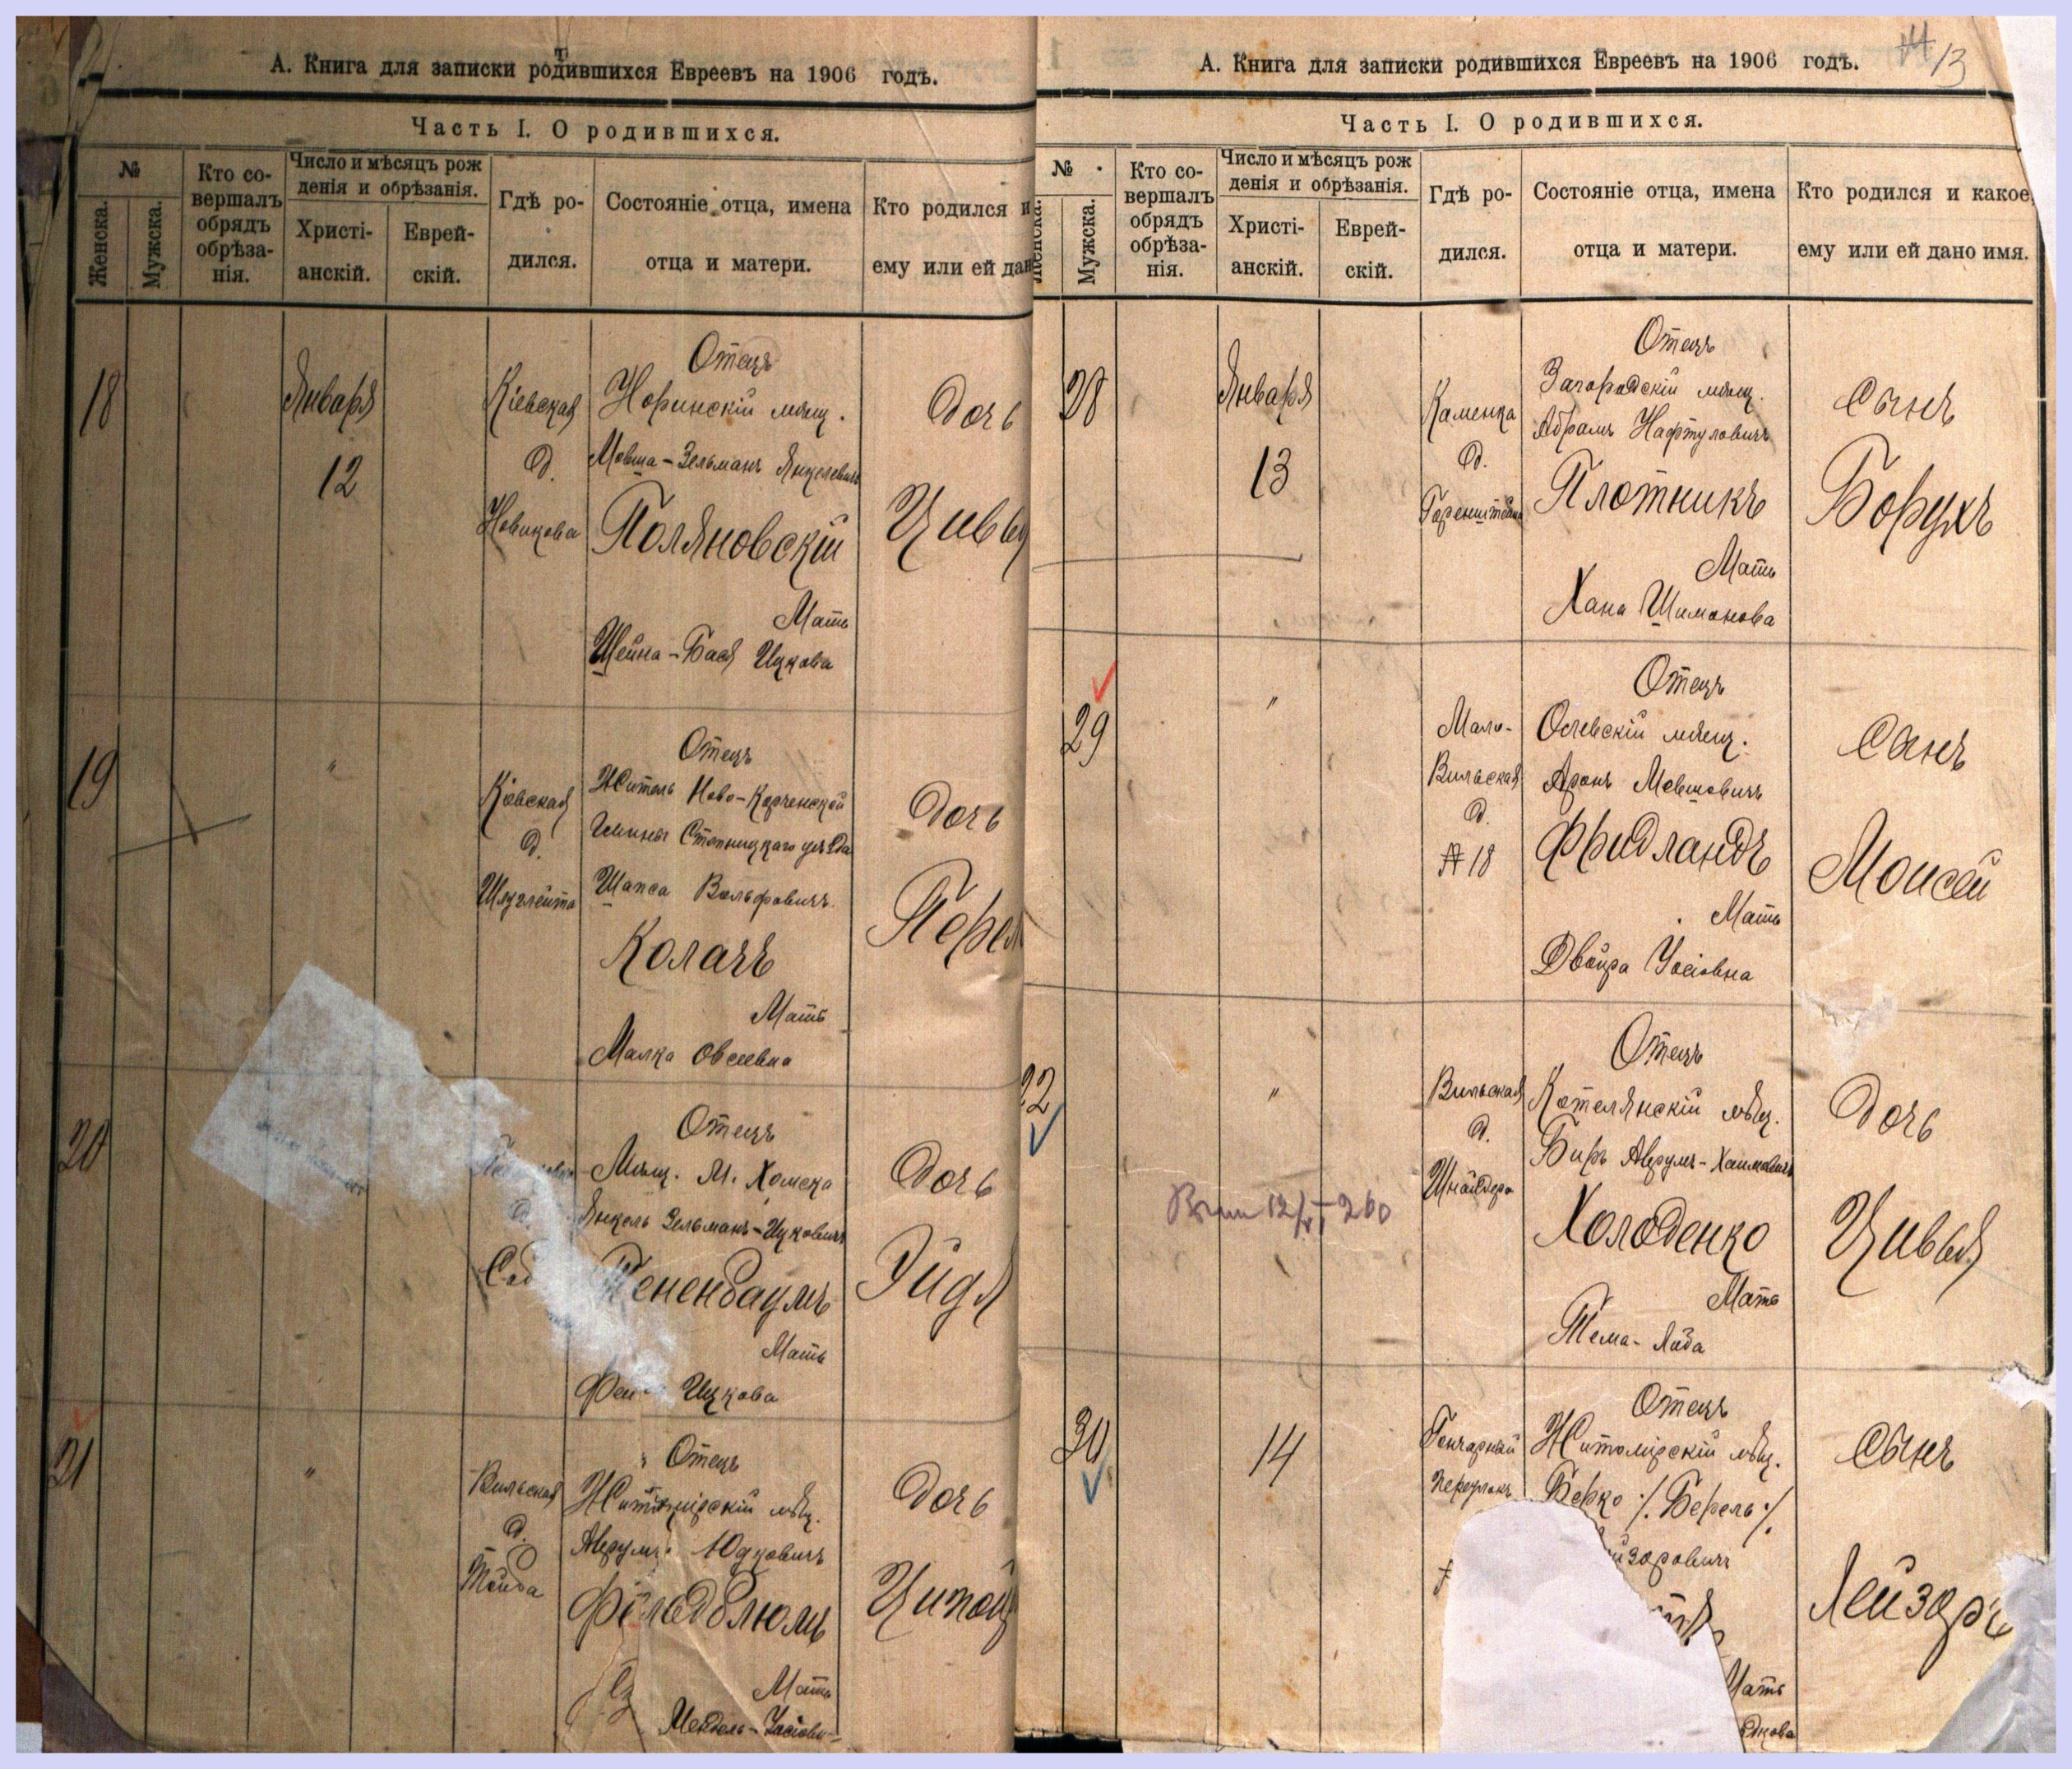 А. Книга для записки родившихся Евреевъ на 1906 годъ.
Часть I. О родившихся.
№
Женска.
Мужска.
Кто со-
вершалъ
обрядъ
обрѣза-
нія.
Число и мѣсяцъ рож
денія и обрѣзанія.
Христі-
анскій.
Еврей-
скій.
Гдѣ ро-
дился.
Состояніе отца, имена
отца и матери.
Кто родился и
ему или ей дан
18
Января
12
Кіевская
д.
Новикова
Отецъ
Норинскій мѣщ.
Мовша-Зельманъ Янкелевичъ
Поляновскій
Мать
Шейна-Бася Ицкова
Дочь
Цивья
19
"
Кіевская
д.
Отецъ
Житель Ново-Корченской
Гмины Стопницкаго уѣзда
Шапса Вольфовичъ
Колачъ
Мать
Малка Овсеевна
Дочь
Перел
20
д.
Отецъ
Мѣщ. М. Хомска
Янкель Зельманъ-Ицковичъ
Тененбаумъ
Мать
Ицкова
Дочь
Эйдя
21
"
Вильская
д.
Отецъ
Житомірскій мѣщ.
Аврумъ Юдковичъ
Фельдблюмъ
Мать
Дочь
А. Книга для записки родившихся Евреевъ на 1906 годъ.
13
Часть I. О родившихся.
№
Женска.
Мужска.
Кто со-
вершалъ
обрядъ
обрѣза-
нія.
Число и мѣсяцъ рож
денія и обрѣзанія.
Христі-
анскій.
Еврей-
скій.
Гдѣ ро-
дился.
Состояніе отца, имена
отца и матери.
Кто родился и какое
ему или ей дано имя.
28
Января
13
Каменка
д.
Горенштейна
Отецъ
Загородскій мѣщ.
Абрамъ Нафтуловичъ
Плотникъ
Мать
Хана Шимонова
Сынъ
Борухъ
29
"
Мало-
Вильская
д.
№ 18
Отецъ
Олевскій мѣщ.
Аронъ Мовшовичъ
Фридландъ
Мать
Двойра Іосіовна
Сынъ
Моисей
22
"
Вильская
д.
Шнайдера
Отецъ
Котелянскій мѣщ.
Биръ Аврумъ-Хаимовичъ
Холоденко
Мать
Тема-Либа
Дочь
Цивья
30
14
Гончарный
переулокъ
Отецъ
Житомірскій мѣщ.
Берко /. Берель ./
йзоровичъ
Мать
Сынъ
Лейзоръ